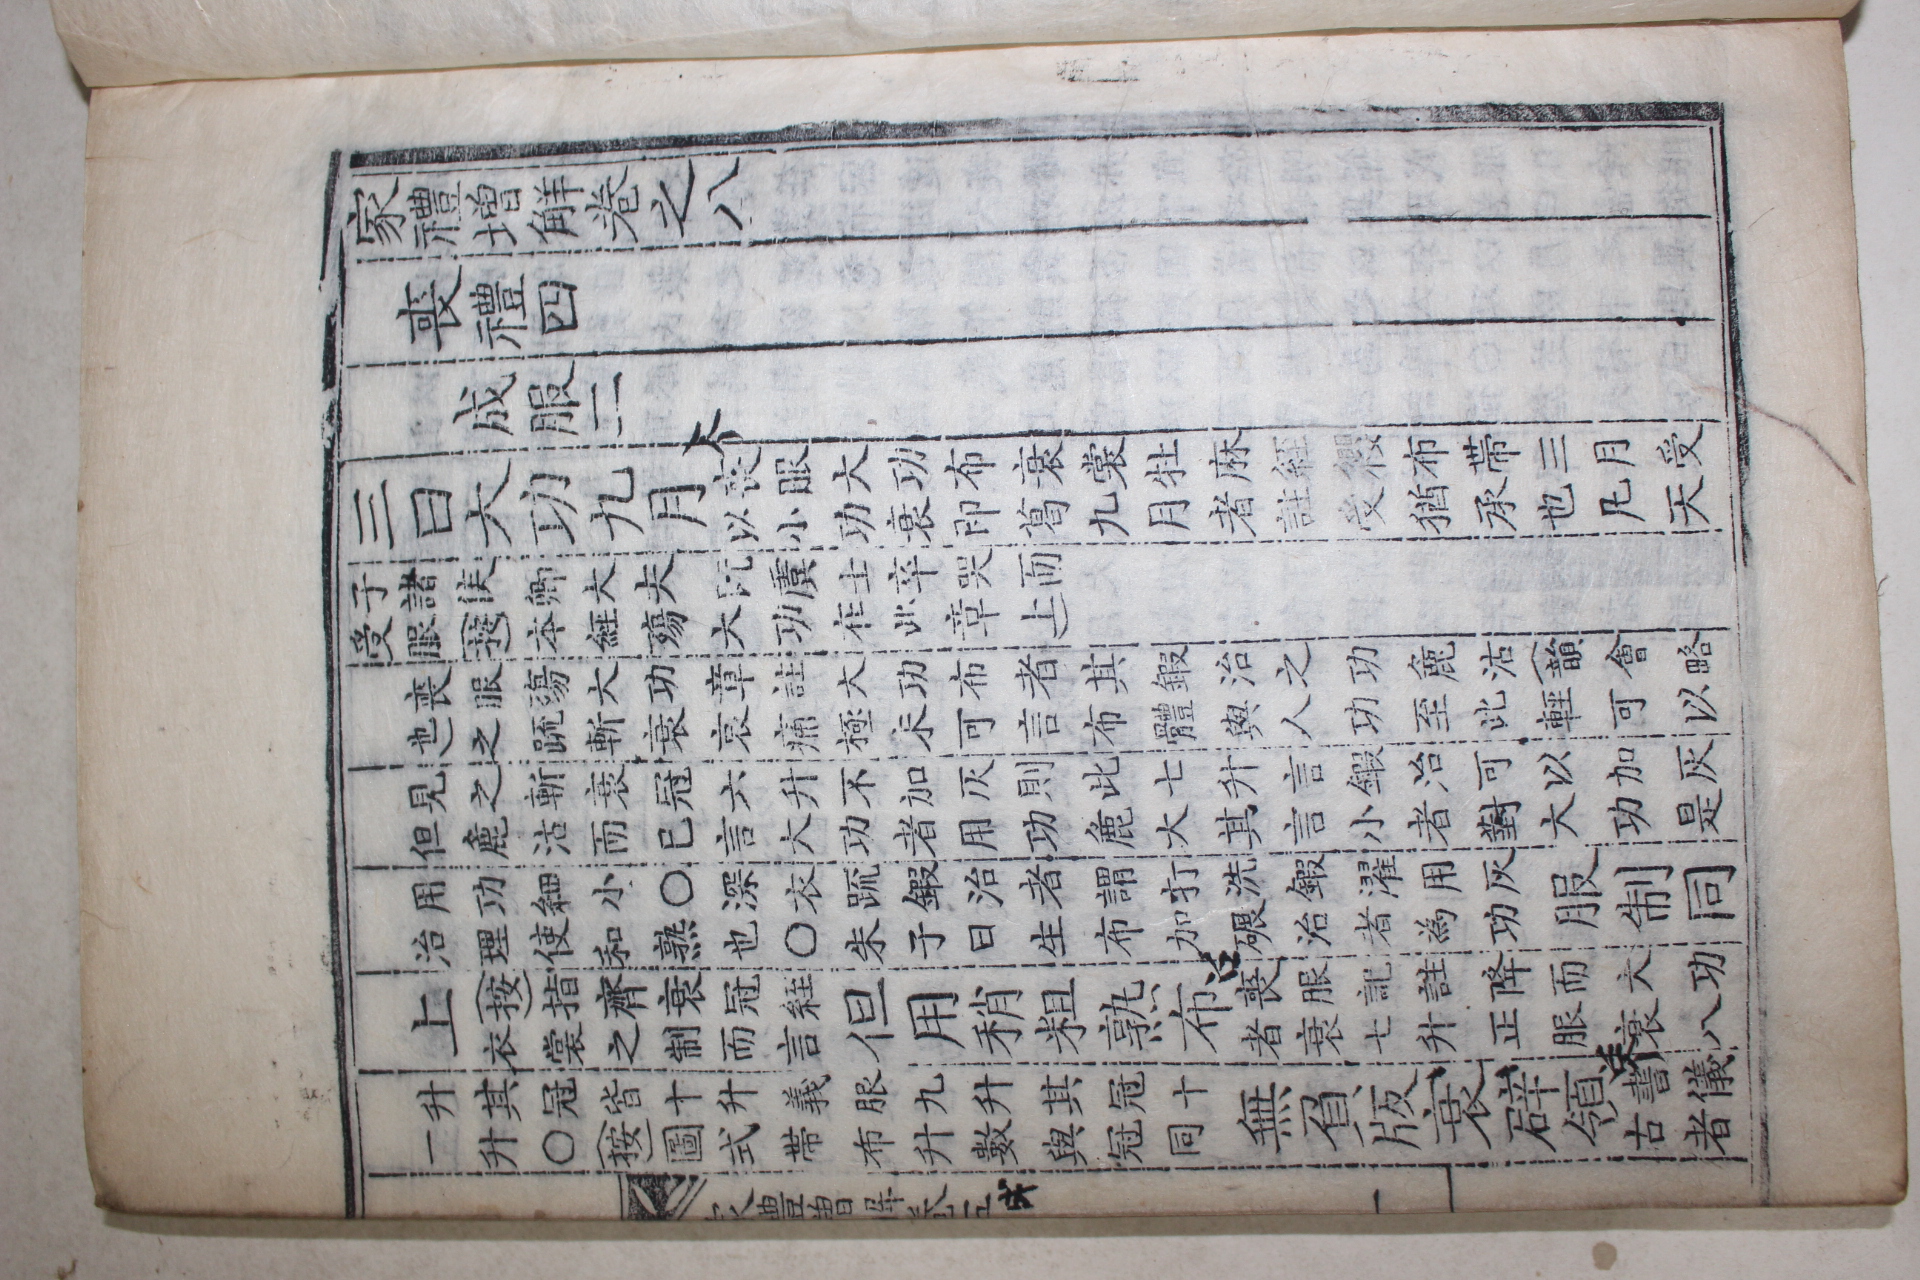 家禮增解卷之八
喪禮四
成服二
三曰大功九月
喪服大功布衰裳牡麻絰纓布帶三月受
以小功衰即葛九月者註受猶承也凡天
子諸侯卿大夫既虞士卒哭而
受服(按)本經殤大功在此章上)
喪服殤大功章註大功布者其鍜治之功麁沽(韻會略
也)之疏斬衰哀痛極未可言布體與人功至此輕可以
見之斬衰冠六升不加灰則此七升言鍜治可以加灰
但麁沽而已言大功者用功麁大其言小者對大功是
用功細小○深衣疏鍜治者謂打洗鍜濯用灰
治理使和熟也○朱子曰生布加碾治者為功
服制同
上
(按)指齊衰冠絰
衣裳之制而言
但用稍粗熟布
喪服記註降而大功
者衰七升正服衰八
升其冠皆十升義服九升其冠十
一升○(按)圖式帶布升數與冠同
無負版衰辟領
書儀
古者
家禮增解卷五
一